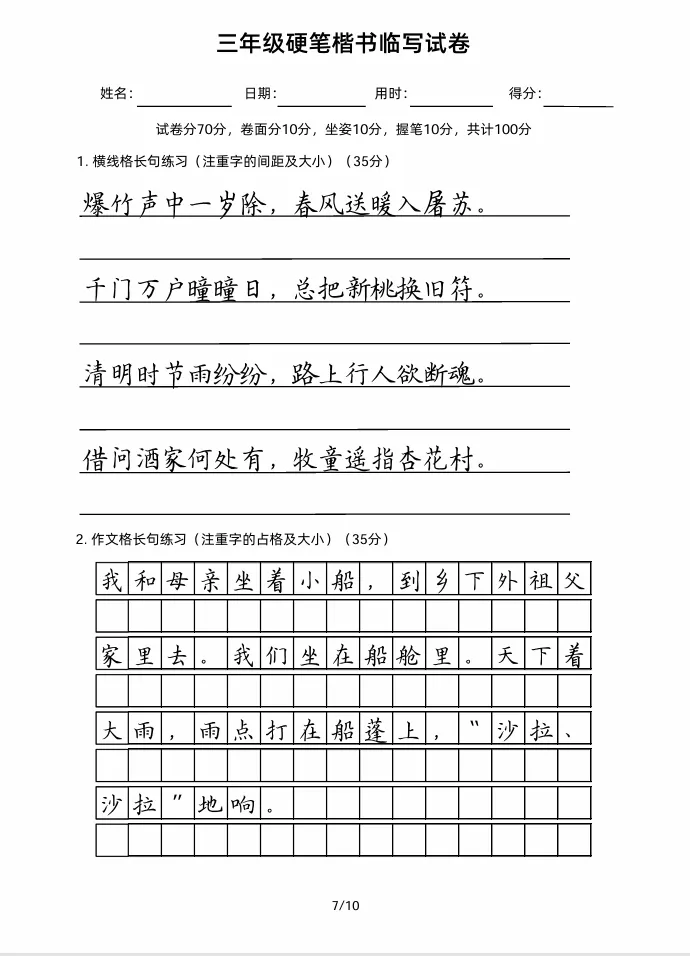 三年级硬笔楷书临写试卷
姓名： 日期： 用时： 得分：
试卷分70分，卷面分10分，坐姿10分，握笔10分，共计100分
1. 横线格长句练习（注重字的间距及大小）（35分）
爆竹声中一岁除，春风送暖入屠苏。
千门万户曈曈日，总把新桃换旧符。
清明时节雨纷纷，路上行人欲断魂。
借问酒家何处有，牧童遥指杏花村。
2. 作文格长句练习（注重字的占格及大小）（35分）
我和母亲坐着小船，到乡下外祖父
家里去。我们坐在船舱里。天下着
大雨，雨点打在船蓬上，“沙拉、
沙拉”地响。
7/10